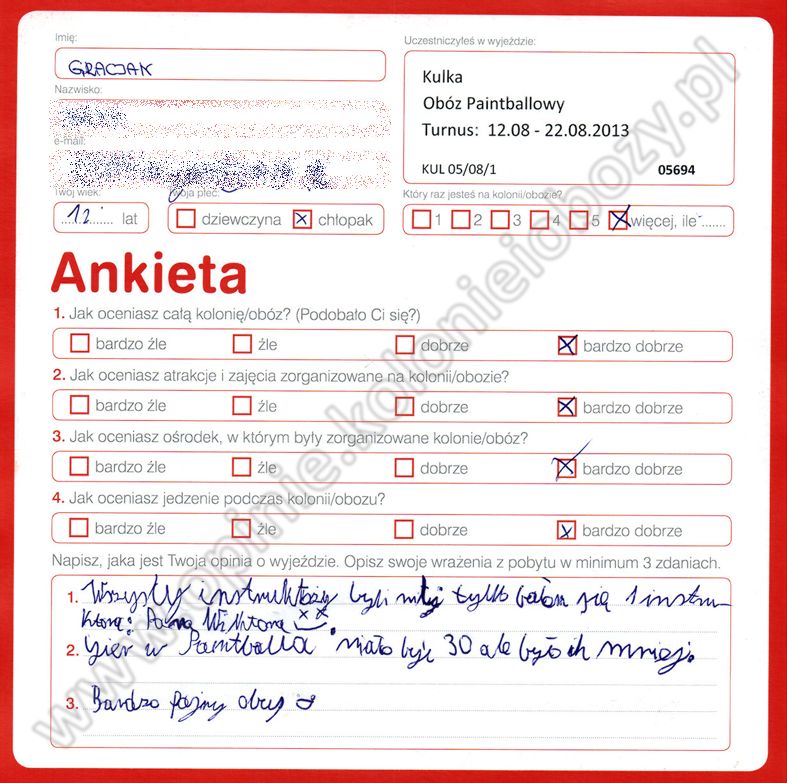 Imię:
Uczestniczyłeś w wyjeździe:
GRACJAN
Kulka
Nazwisko:
Obóz Paintballowy
Turnus: 12.08 - 22.08.2013
e-mail:
KUL 05/08/1 05694
Twój wiek: Twoja płeć: Który raz jesteś na kolonii/obozie?
12 lat dziewczyna chłopak 1 2 3 4 5 więcej, ile
Ankieta
1. Jak oceniasz całą kolonię/obóz? (Podobało Ci się?)
bardzo źle źle dobrze bardzo dobrze
2. Jak oceniasz atrakcje i zajęcia zorganizowane na kolonii/obozie?
bardzo źle źle dobrze bardzo dobrze
3. Jak oceniasz ośrodek, w którym były zorganizowane kolonie/obóz?
bardzo źle źle dobrze bardzo dobrze
4. Jak oceniasz jedzenie podczas kolonii/obozu?
bardzo źle źle dobrze bardzo dobrze
Napisz, jaka jest Twoja opinia o wyjeździe. Opisz swoje wrażenia z pobytu w minimum 3 zdaniach.
1. instruktorzy byli tylko się 1 instru
Wiktora
2. gier w Paintballa miało być 30 ale było ich mniej.
3. Bardzo fajny
www.opinie.kolonieiobozy.pl